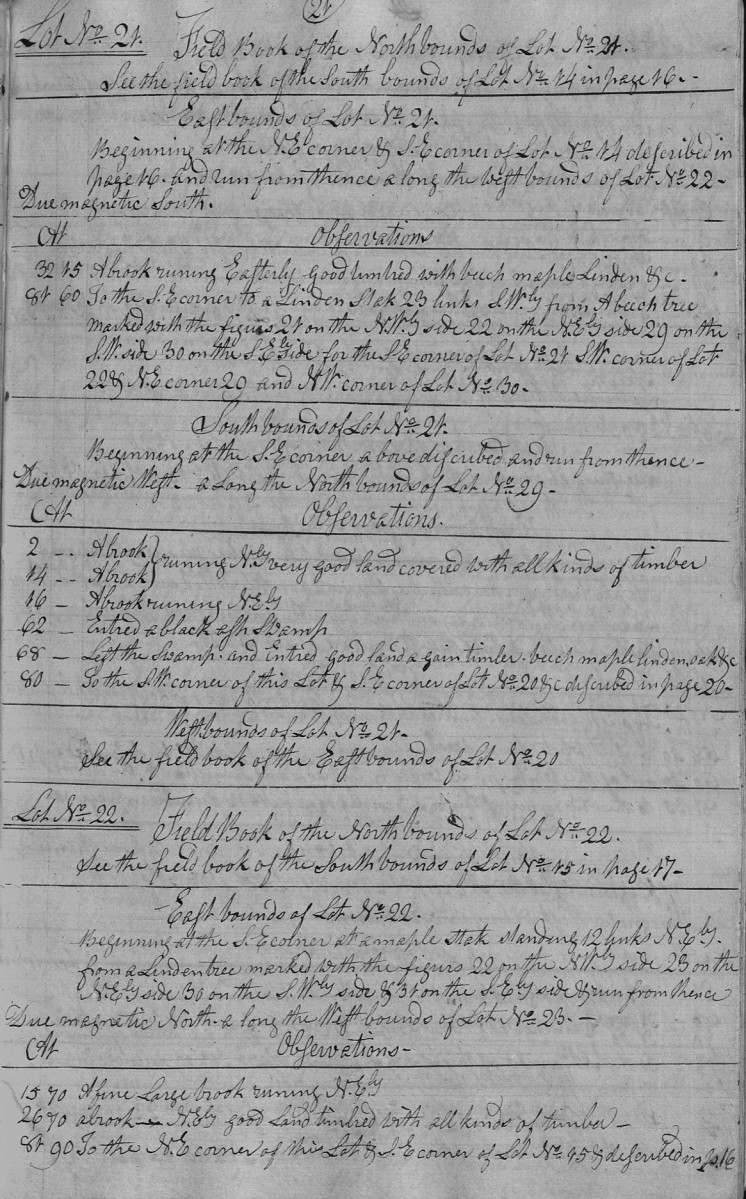 21
Lot No. 21. Field Book of the North bounds of Lot No. 21.
See the field book of the South bounds of Lot No. 14 in page 16.-
East bounds of Lot No. 21.
Beginning at the N.E corner & S.E corner of Lot No. 14 described in
page 16. and run from thence a long the west bounds of Lot No. 22-
Due magnetic South.
At Observations
32 15 A brook runing Easterly good timbred with beech maple Linden &c-
81 60 To the S.E corner to a Linden Stak 23 links S.Wly from A beech tree
marked with the figurs 21 on the N.Wly side 22 on the N.Ely side 29 on the
S.W. side 30 on the S.Ely side for the S.E corner of Lot No. 21 S.W. corner of Lot
22 & N.E corner 29 and N.W. corner of Lot No. 30-
South bounds of Lot No. 21.
Beginning at the S.E corner a bove discribed and run from thence-
Due magnetic West. a Long the North bounds of Lot No. 29-
At Observations.
2 -- A brook } runing N.ly very good land covered with all kinds of timber
14 -- A brook
16 - A brook runing N.Ely
62 - Entred a black ash Swamp
68 - Left the Swamp. and Entred good land a gain timber. beech maple linden, oak &c
80 - To the S.W. corner of this Lot & S.E corner of Lot No. 20 &c described in page 20-
West bounds of Lot No. 21-
See the field book of the East bounds of Lot No. 20
Lot No. 22. Field Book of the North bounds of Lot No. 22.
See the field book of the South bounds of Lot No. 15 in page 17-
East bounds of Lot No. 22.
Beginning at the S.E corner at a maple Stak standing 12 links N.Ely.
from a Linden tree marked with the figurs 22 on the N.Wly side 23 on the
N.Ely side 30 on the S.Wly side & 31 on the S.Ely side & run from thence
Due magnetic North. a long the West bounds of Lot No. 23.-
At Observations-
15 70 A fine Large brook runing N.Ely
26 70 a brook - N.Ely good Land timbred with all kinds of timber-
81 90 To the N.E corner of this Lot & S.E corner of Lot No. 15 & described in p. 16